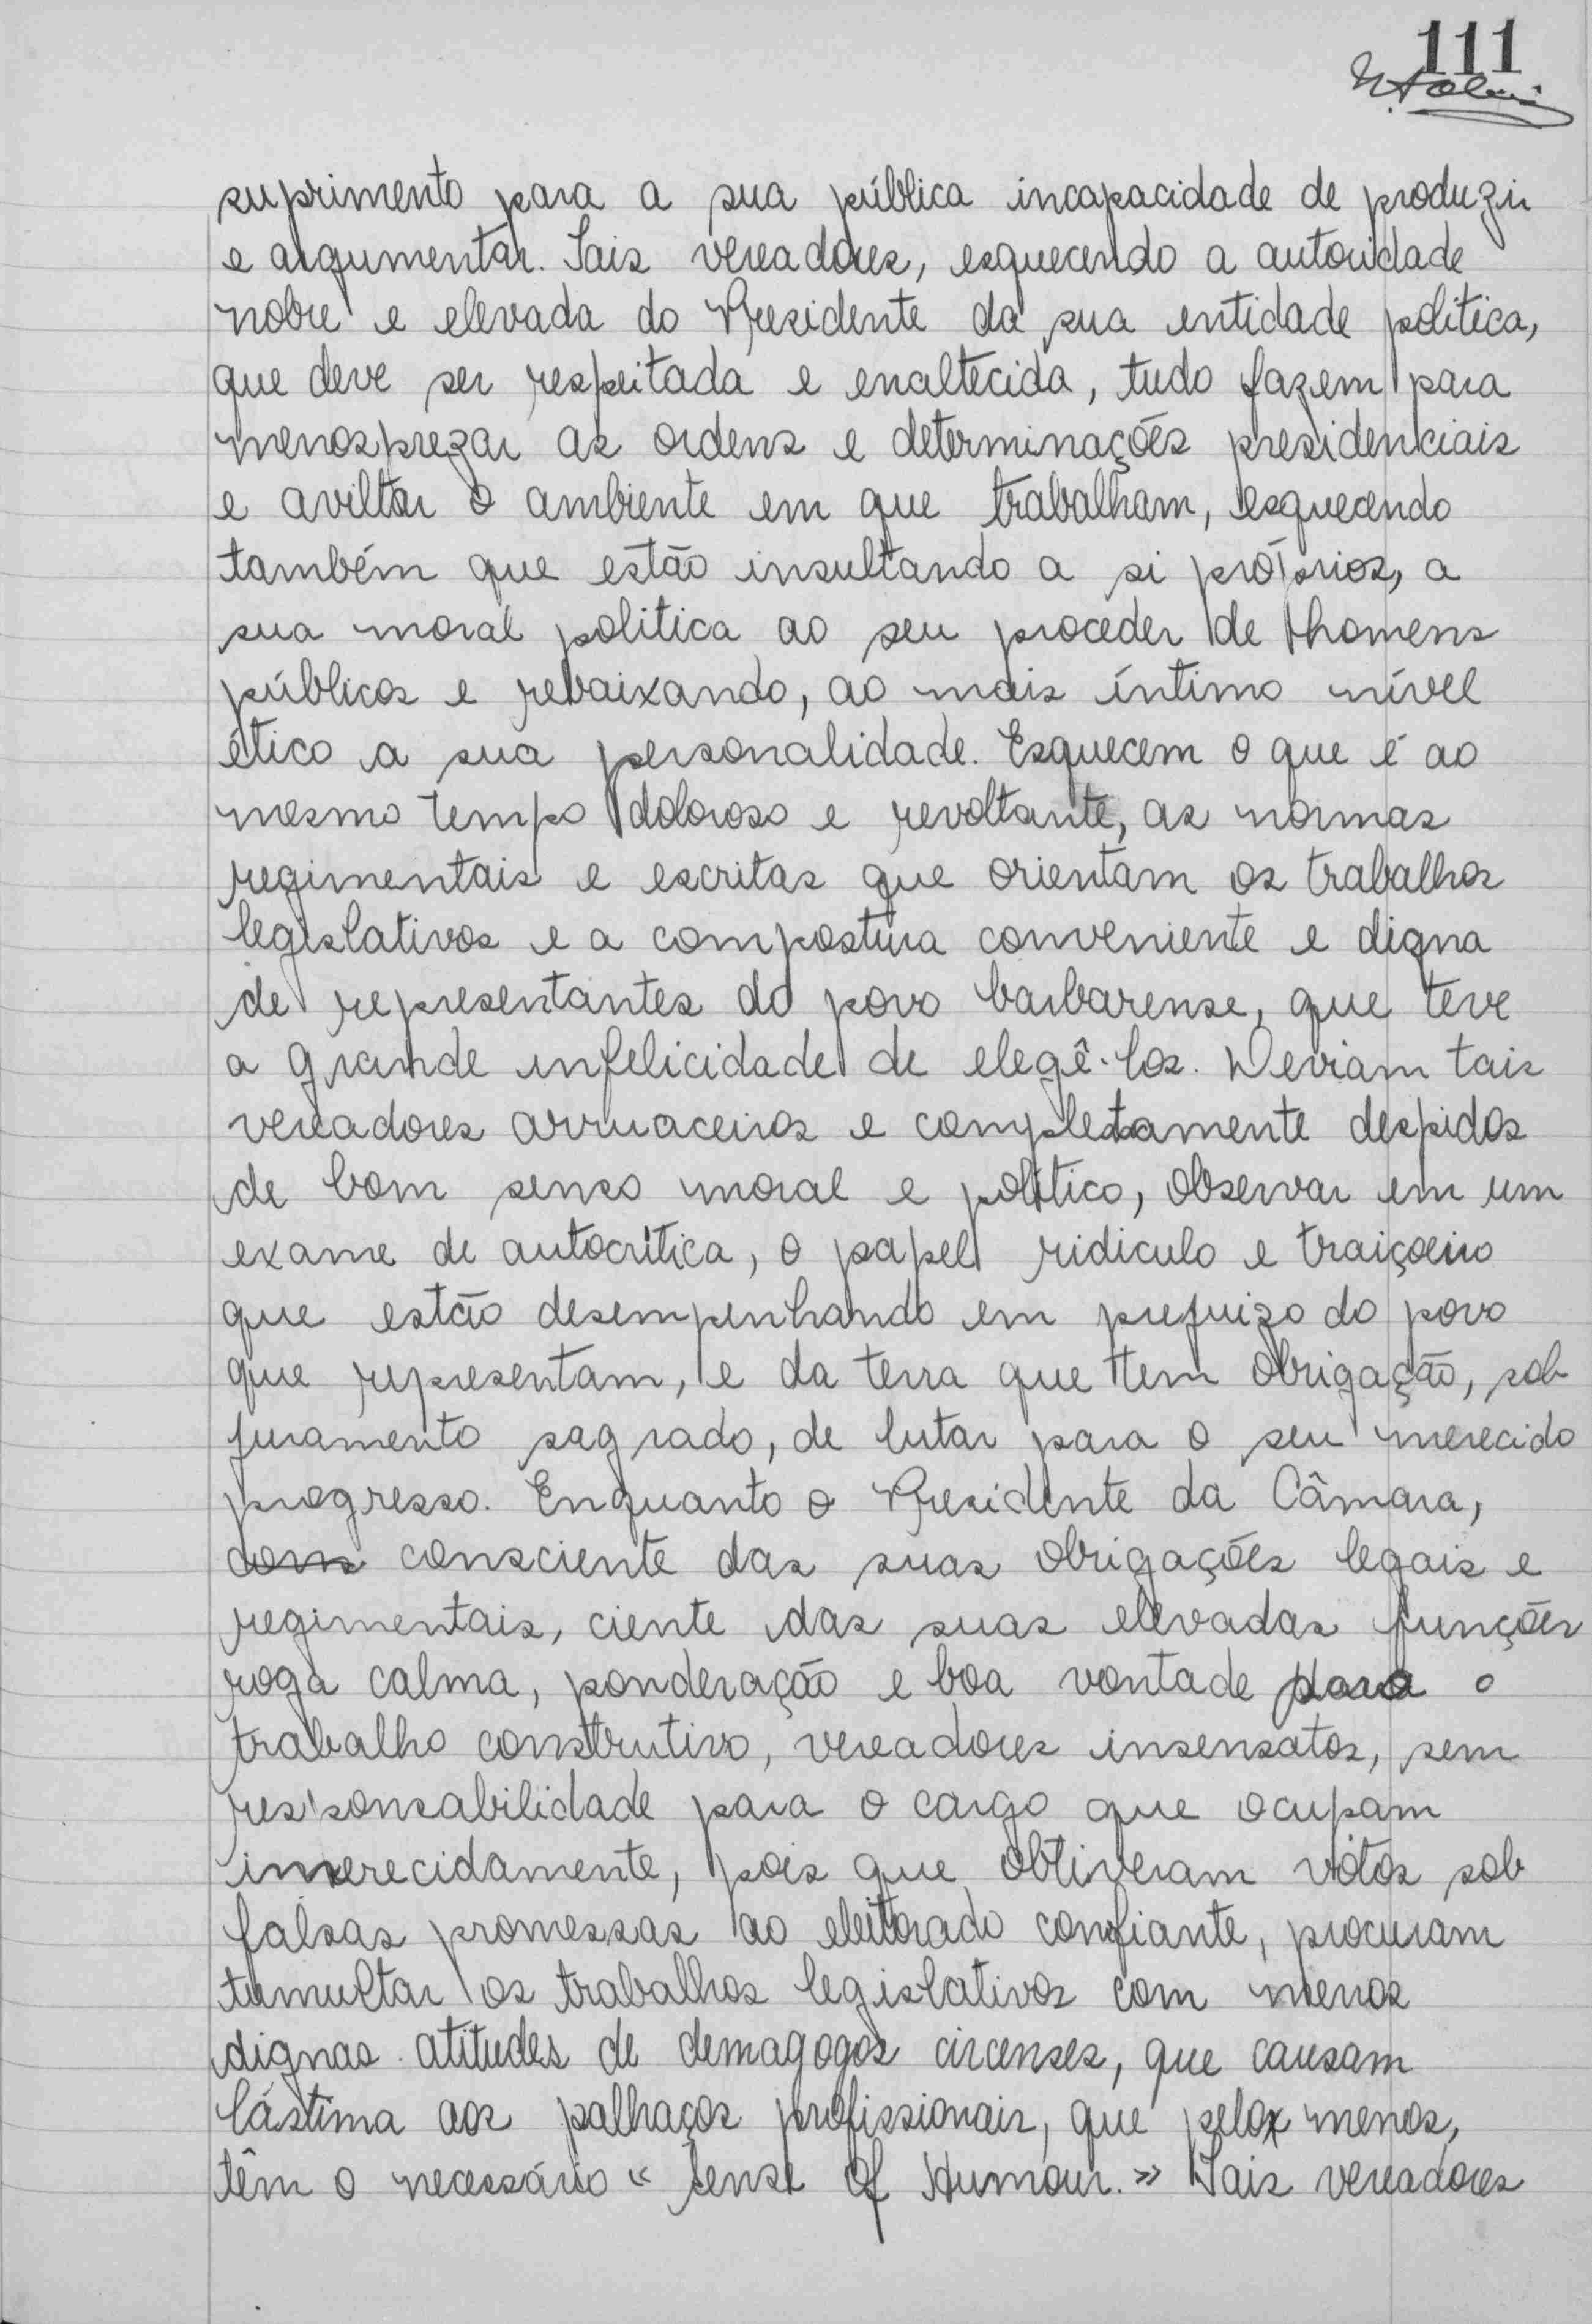 111
suprimento para a sua pública incapacidade de produzir
e argumentar. Tais vereadores, esquecendo a autoridade
nobre e elevada do Presidente da sua entidade política,
que deve ser respeitada e enaltecida, tudo fazem para
menosprezar as ordens e determinações presidenciais
e aviltar o ambiente em que trabalham, esquecendo
também que estão insultando a si próprios, a
sua moral politica ao seu proceder de homens
públicos e rebaixando, ao mais íntimo nível
ético a sua personalidade. Esquecem o que é ao
mesmo tempo doloroso e revoltante, as normas
regimentais e escritas que orientam os trabalhos
legislativos e a compostura conveniente e digna
de representantes do povo barbarense, que teve
a grande infelicidade de elegê-los. Deviam tais
vereadores arruaceiros e completamente despidos
de bom senso moral e político, observar em um
exame de autocrítica, o papel ridiculo e traiçoeiro
que estão desempenhando em prejuizo do povo
que representam, e da terra que tem obrigação, sob
juramento sagrado, de lutar para o seu merecido
progresso. Enquanto o Presidente da Câmara,
cons consciente das suas obrigações legais e
regimentais, ciente das suas elevadas funções
roga calma, ponderação e boa vontade para o
trabalho construtivo, vereadores insensatos, sem
responsabilidade para o cargo que ocupam
imerecidamente, pois que obtiveram votos sob
falsas promessas ao eleitorado confiante, procuram
tumultar os trabalhos legislativos com menos
dignas atitudes de demagogos circenses, que causam
lástima aos palhaços profissionais, que pelo menos,
têm o necessário « Sense of Humour. » Tais vereadores